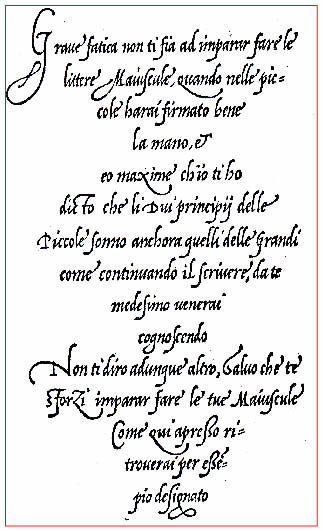 Grave fatica non ti fia ad imparar fare le
littere Maiuscule, quando nelle pic=
cole harai firmato bene
la mano, &
eo maxime ch'io ti ho
ditto che li Dui principij delle
Piccole sonno anchora quelli delle Grandi
come continuando il scrivere, da te
medesimo venerai
cognoscendo
Non ti diro adunque altro, Salvo che te
sforzi imparar fare le tue Maiuscule
Come qui apresso ri=
troverai per essē=
pio designato